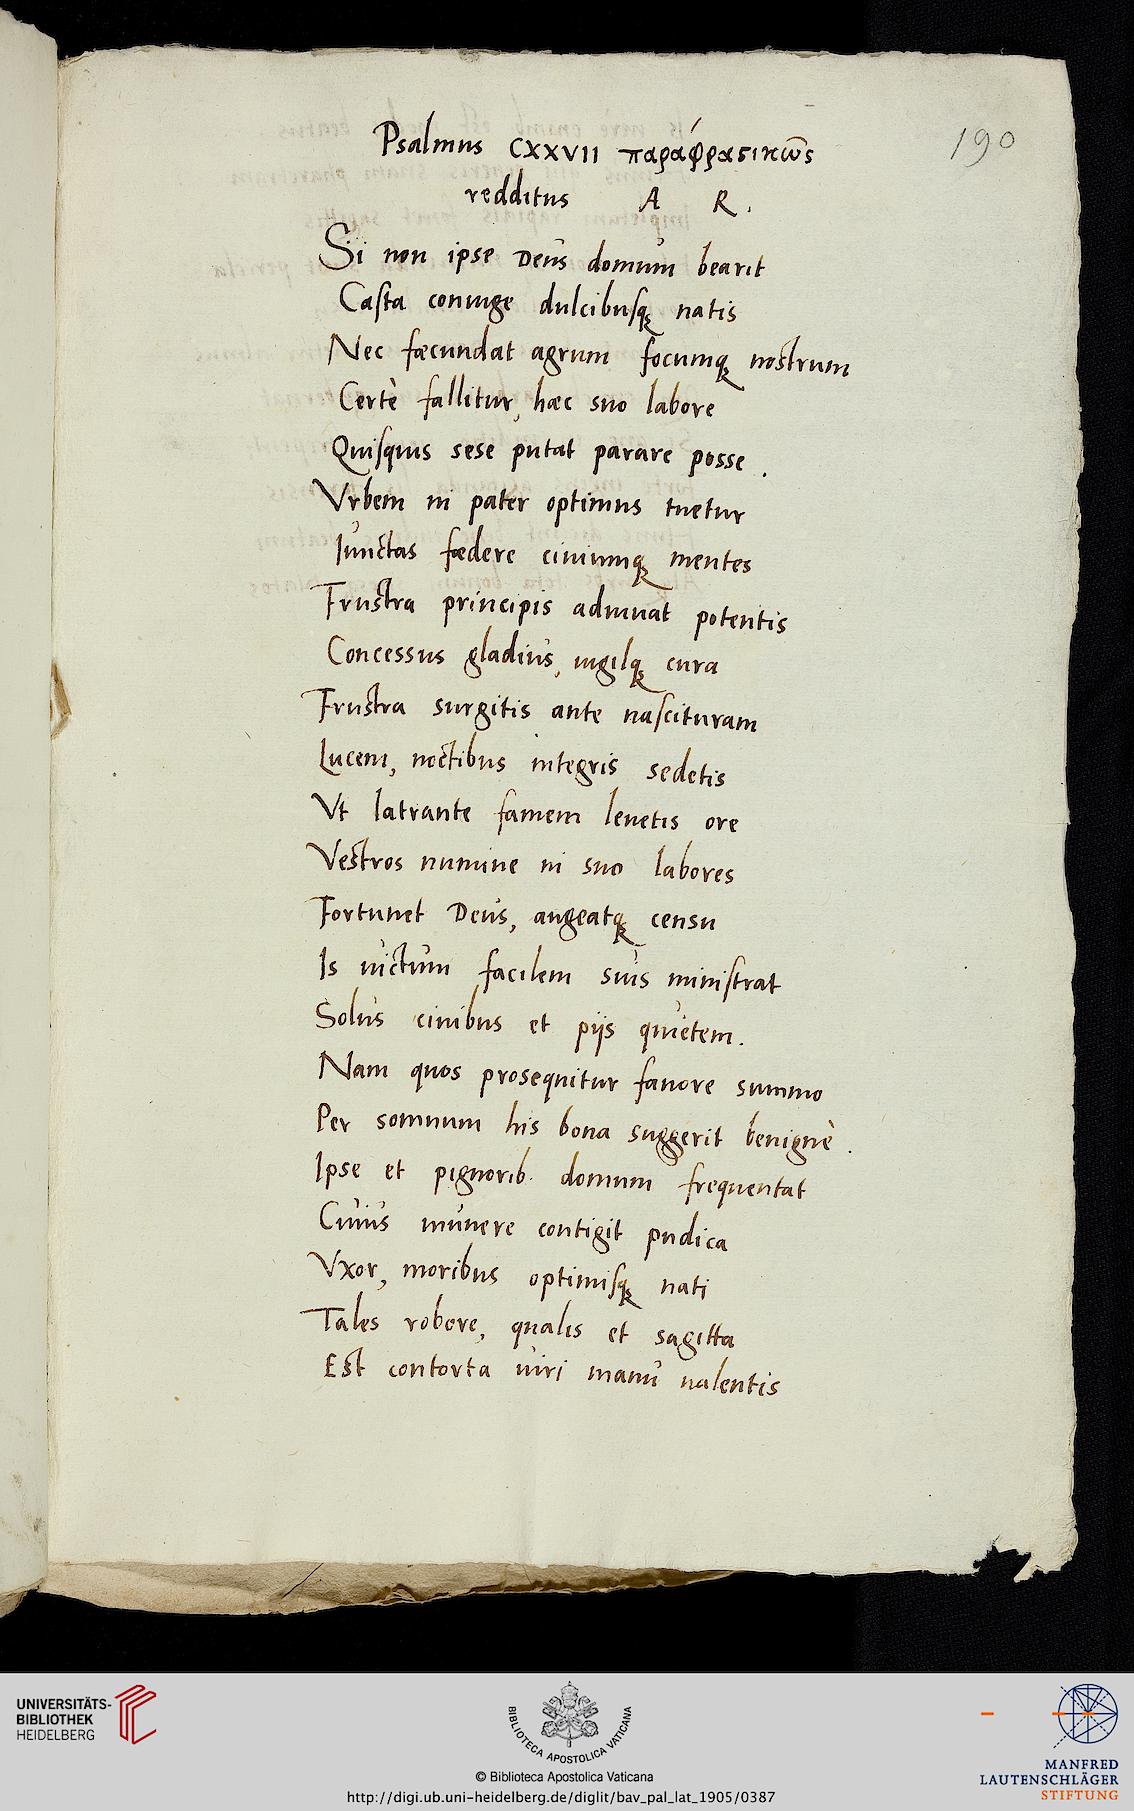 190
Psalmus CXXVII παράφραςικῶς
redditus A R.
Si non ipse Deus domum bearit
Casta coniuge dulcibusq; natis
Nec fæcundat agrum focumq; nostrum
Certè fallitur, hæc suo labore
Quisquis sese putat parare posse.
Vrbem ni pater optimus tuetur
Iunctas fœdere ciuiumq; mentes
Frustra principis adiuuat potentis
Concessus gladius, uigilq; cura
Frustra surgitis ante nascituram
Lucem, noctibus integris sedetis
Vt latrante famem leuetis ore
Vestros numine ni suo labores
Fortunet Deus, augeatq; censu
Is uictum facilem suis ministrat
Solus ciuibus et pijs quietem.
Nam quos prosequitur fauore summo
Per somnum his bona suggerit benignè.
Ipse et pignorib. domum frequentat
Cuius munere contigit pudica
Vxor, moribus optimisq; nati
Tales robore, qualis et sagitta
Est contorta uiri manu ualentis
UNIVERSITÄTS-
BIBLIOTHEK
HEIDELBERG
BIBLIOTECA APOSTOLICA VATICANA
© Biblioteca Apostolica Vaticana
http://digi.ub.uni-heidelberg.de/diglit/bav_pal_lat_1905/0387
MANFRED
LAUTENSCHLÄGER
STIFTUNG